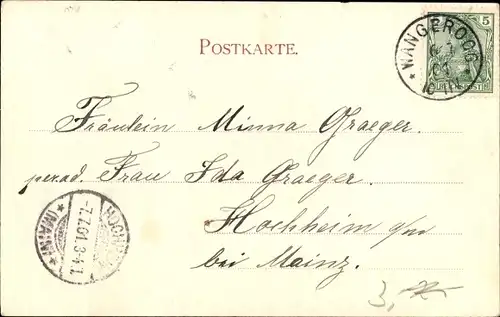 POSTKARTE.
5
WANGEROOG
10-11
Fräulein Minna Graeger.
p. ad. Frau Ida Graeger.
Hochheim a/M
bei Mainz.
HOCHHEIM
7.7.01.3-4.
(MAIN)
3,-